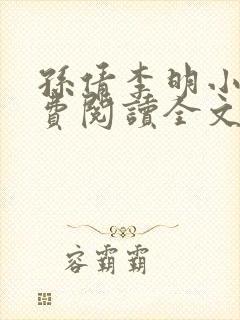 孫倩李明小
費閱讀全文
容霸霸